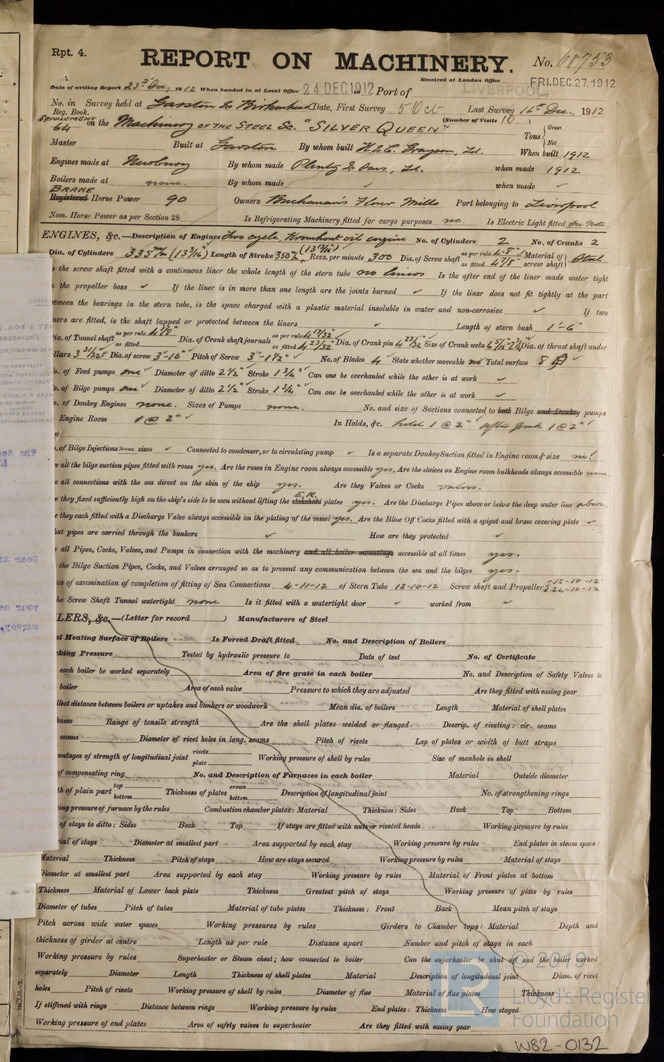 Rpt. 4.
REPORT ON MACHINERY.
No. 68753
Received at London Office
FRI. DEC. 27. 1912
Date of writing Report 23rd Dec. 1912 When handed in at Local Office 24 DEC 1912 Port of LIVERPOOL
No. in Survey held at Garston & Birkenhead Date, First Survey 5 Oct Last Survey 16th Dec. 1912
Reg. Book. (Number of Visits 10.)
SUPPLEMENT 64 on the Machinery OF THE STEEL Sc. "SILVER QUEEN" Tons Gross Net
Master Built at Garston By whom built H. & C. Grayson, Ld. When built 1912
Engines made at Newbury By whom made Plenty & Sons, Ld. when made 1912
Boilers made at none. By whom made when made
BRAKE
Registered Horse Power 90 Owners Buchanan's Flour Mills Port belonging to Liverpool
Nom. Horse Power as per Section 28 Is Refrigerating Machinery fitted for cargo purposes no. Is Electric Light fitted See Note
ENGINES, &c.—Description of Engines Two cycle, Kromhout oil engine No. of Cylinders 2 No. of Cranks 2
Dia. of Cylinders 335 m/m (13 3/16") Length of Stroke 350 Revs. per minute 300 Dia. of Screw shaft as per rule as fitted 4 7/8" Material of screw shaft Steel
is the screw shaft fitted with a continuous liner the whole length of the stern tube no liners Is the after end of the liner made water tight
the propeller boss If the liner is in more than one length are the joints burned If the liner does not fit tightly at the part
between the bearings in the stern tube, is the space charged with a plastic material insoluble in water and non-corrosive If two
ners are fitted, is the shaft lapped or protected between the liners Length of stern bush 1'-6"
Dia. of Tunnel shaft as per rule as fitted Dia. of Crank shaft journals as per rule as fitted 4 23/32 Dia. of Crank pin 4 23/32 Size of Crank webs Dia. of thrust shaft under
llars 3 31/32 Dia. of screw 3'-10" Pitch of Screw 3'-1 1/2" No. of Blades 4 State whether moveable no Total surface 8
o. of Feed pumps one Diameter of ditto 2 1/2" Stroke 1 3/4" Can one be overhauled while the other is at work
o. of Bilge pumps one Diameter of ditto 2 1/2" Stroke 1 3/4" Can one be overhauled while the other is at work
o. of Donkey Engines none. Sizes of Pumps none. No. and size of Suctions connected to both Bilge and Donkey pumps
Engine Room 1 @ 2" In Holds, &c. hold 1 @ 2" After peak 1 @ 2"
. of Bilge Injections none sizes Connected to condenser, or to circulating pump Is a separate Donkey Suction fitted in Engine room & size no!
e all the bilge suction pipes fitted with roses yes. Are the roses in Engine room always accessible yes. Are the sluices on Engine room bulkheads always accessible none
e all connections with the sea direct on the skin of the ship yes. Are they Valves or Cocks valves.
e they fixed sufficiently high on the ship's side to be seen without lifting the E.R. stokehold plates yes. Are the Discharge Pipes above or below the deep water line above
e they each fitted with a Discharge Valve always accessible on the plating of the vessel yes. Are the Blow Off Cocks fitted with a spigot and brass covering plate
hat pipes are carried through the bunkers How are they protected
all Pipes, Cocks, Valves, and Pumps in connection with the machinery and all boiler mountings accessible at all times yes.
the Bilge Suction Pipes, Cocks, and Valves arranged so as to prevent any communication between the sea and the bilges yes.
es of examination of completion of fitting of Sea Connections 4-11-12 of Stern Tube 12-10-12 Screw shaft and Propeller 12-10-12 24-10-12
he Screw Shaft Tunnel watertight none Is it fitted with a watertight door worked from
LERS, &c.—(Letter for record ) Manufacturers of Steel
al Heating Surface of Boilers Is Forced Draft fitted No. and Description of Boilers
king Pressure Tested by hydraulic pressure to Date of test No. of Certificate
each boiler be worked separately Area of fire grate in each boiler No. and Description of Safety Valves to
boiler Area of each valve Pressure to which they are adjusted Are they fitted with easing gear
llest distance between boilers or uptakes and bunkers or woodwork Mean dia. of boilers Length Material of shell plates
kness Range of tensile strength Are the shell plates welded or flanged Descrip. of riveting: cir. seams
seams Diameter of rivet holes in long. seams Pitch of rivets Lap of plates or width of butt straps
centages of strength of longitudinal joint rivets plate Working pressure of shell by rules Size of manhole in shell
of compensating ring No. and Description of Furnaces in each boiler Material Outside diameter
th of plain part top bottom Thickness of plates crown bottom Description of longitudinal joint No. of strengthening rings
ing pressure of furnace by the rules Combustion chamber plates: Material Thickness: Sides Back Top Bottom
of stays to ditto: Sides Back Top If stays are fitted with nuts or riveted heads Working pressure by rules
ial of stays Diameter at smallest part Area supported by each stay Working pressure by rules End plates in steam space:
Material Thickness Pitch of stays How are stays secured Working pressure by rules Material of stays
Diameter at smallest part Area supported by each stay Working pressure by rules Material of Front plates at bottom
Thickness Material of Lower back plate Thickness Greatest pitch of stays Working pressure of plate by rules
Diameter of tubes Pitch of tubes Material of tube plates Thickness: Front Back Mean pitch of stays
Pitch across wide water spaces Working pressures by rules Girders to Chamber tops: Material Depth and
thickness of girder at centre Length as per rule Distance apart Number and pitch of stays in each
Working pressure by rules Superheater or Steam chest; how connected to boiler Can the superheater be shut off and the boiler worked
separately Diameter Length Thickness of shell plates Material Description of longitudinal joint Diam. of rivet
holes Pitch of rivets Working pressure of shell by rules Diameter of flue Material of flue plates Thickness
If stiffened with rings Distance between rings Working pressure by rules End plates: Thickness How stayed
Working pressure of end plates Area of safety valves to superheater Are they fitted with easing gear
© 2019
Lloyd's Register
Foundation
W82-0132